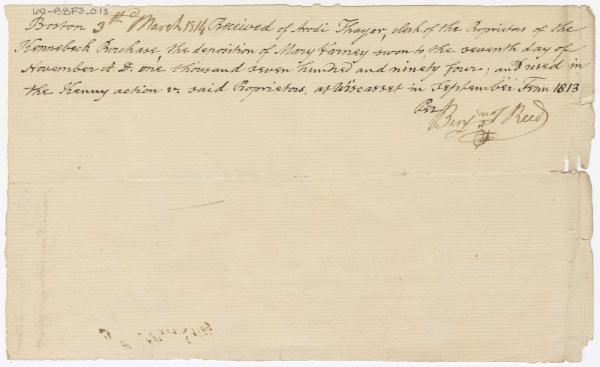 W2-B8F3_013
Boston 3th March 1814 Received of Arodi Thayer, clerk of the Proprietors of the
Kennebeck Purchase, the deposition of Mary Varney sworn to the seventh day of
November A. D. one thousand seven hundred and ninety four, and used in
the Kenny action v. said Proprietors, at Wiscasset in September Term 1813
Per
Benjm Reed